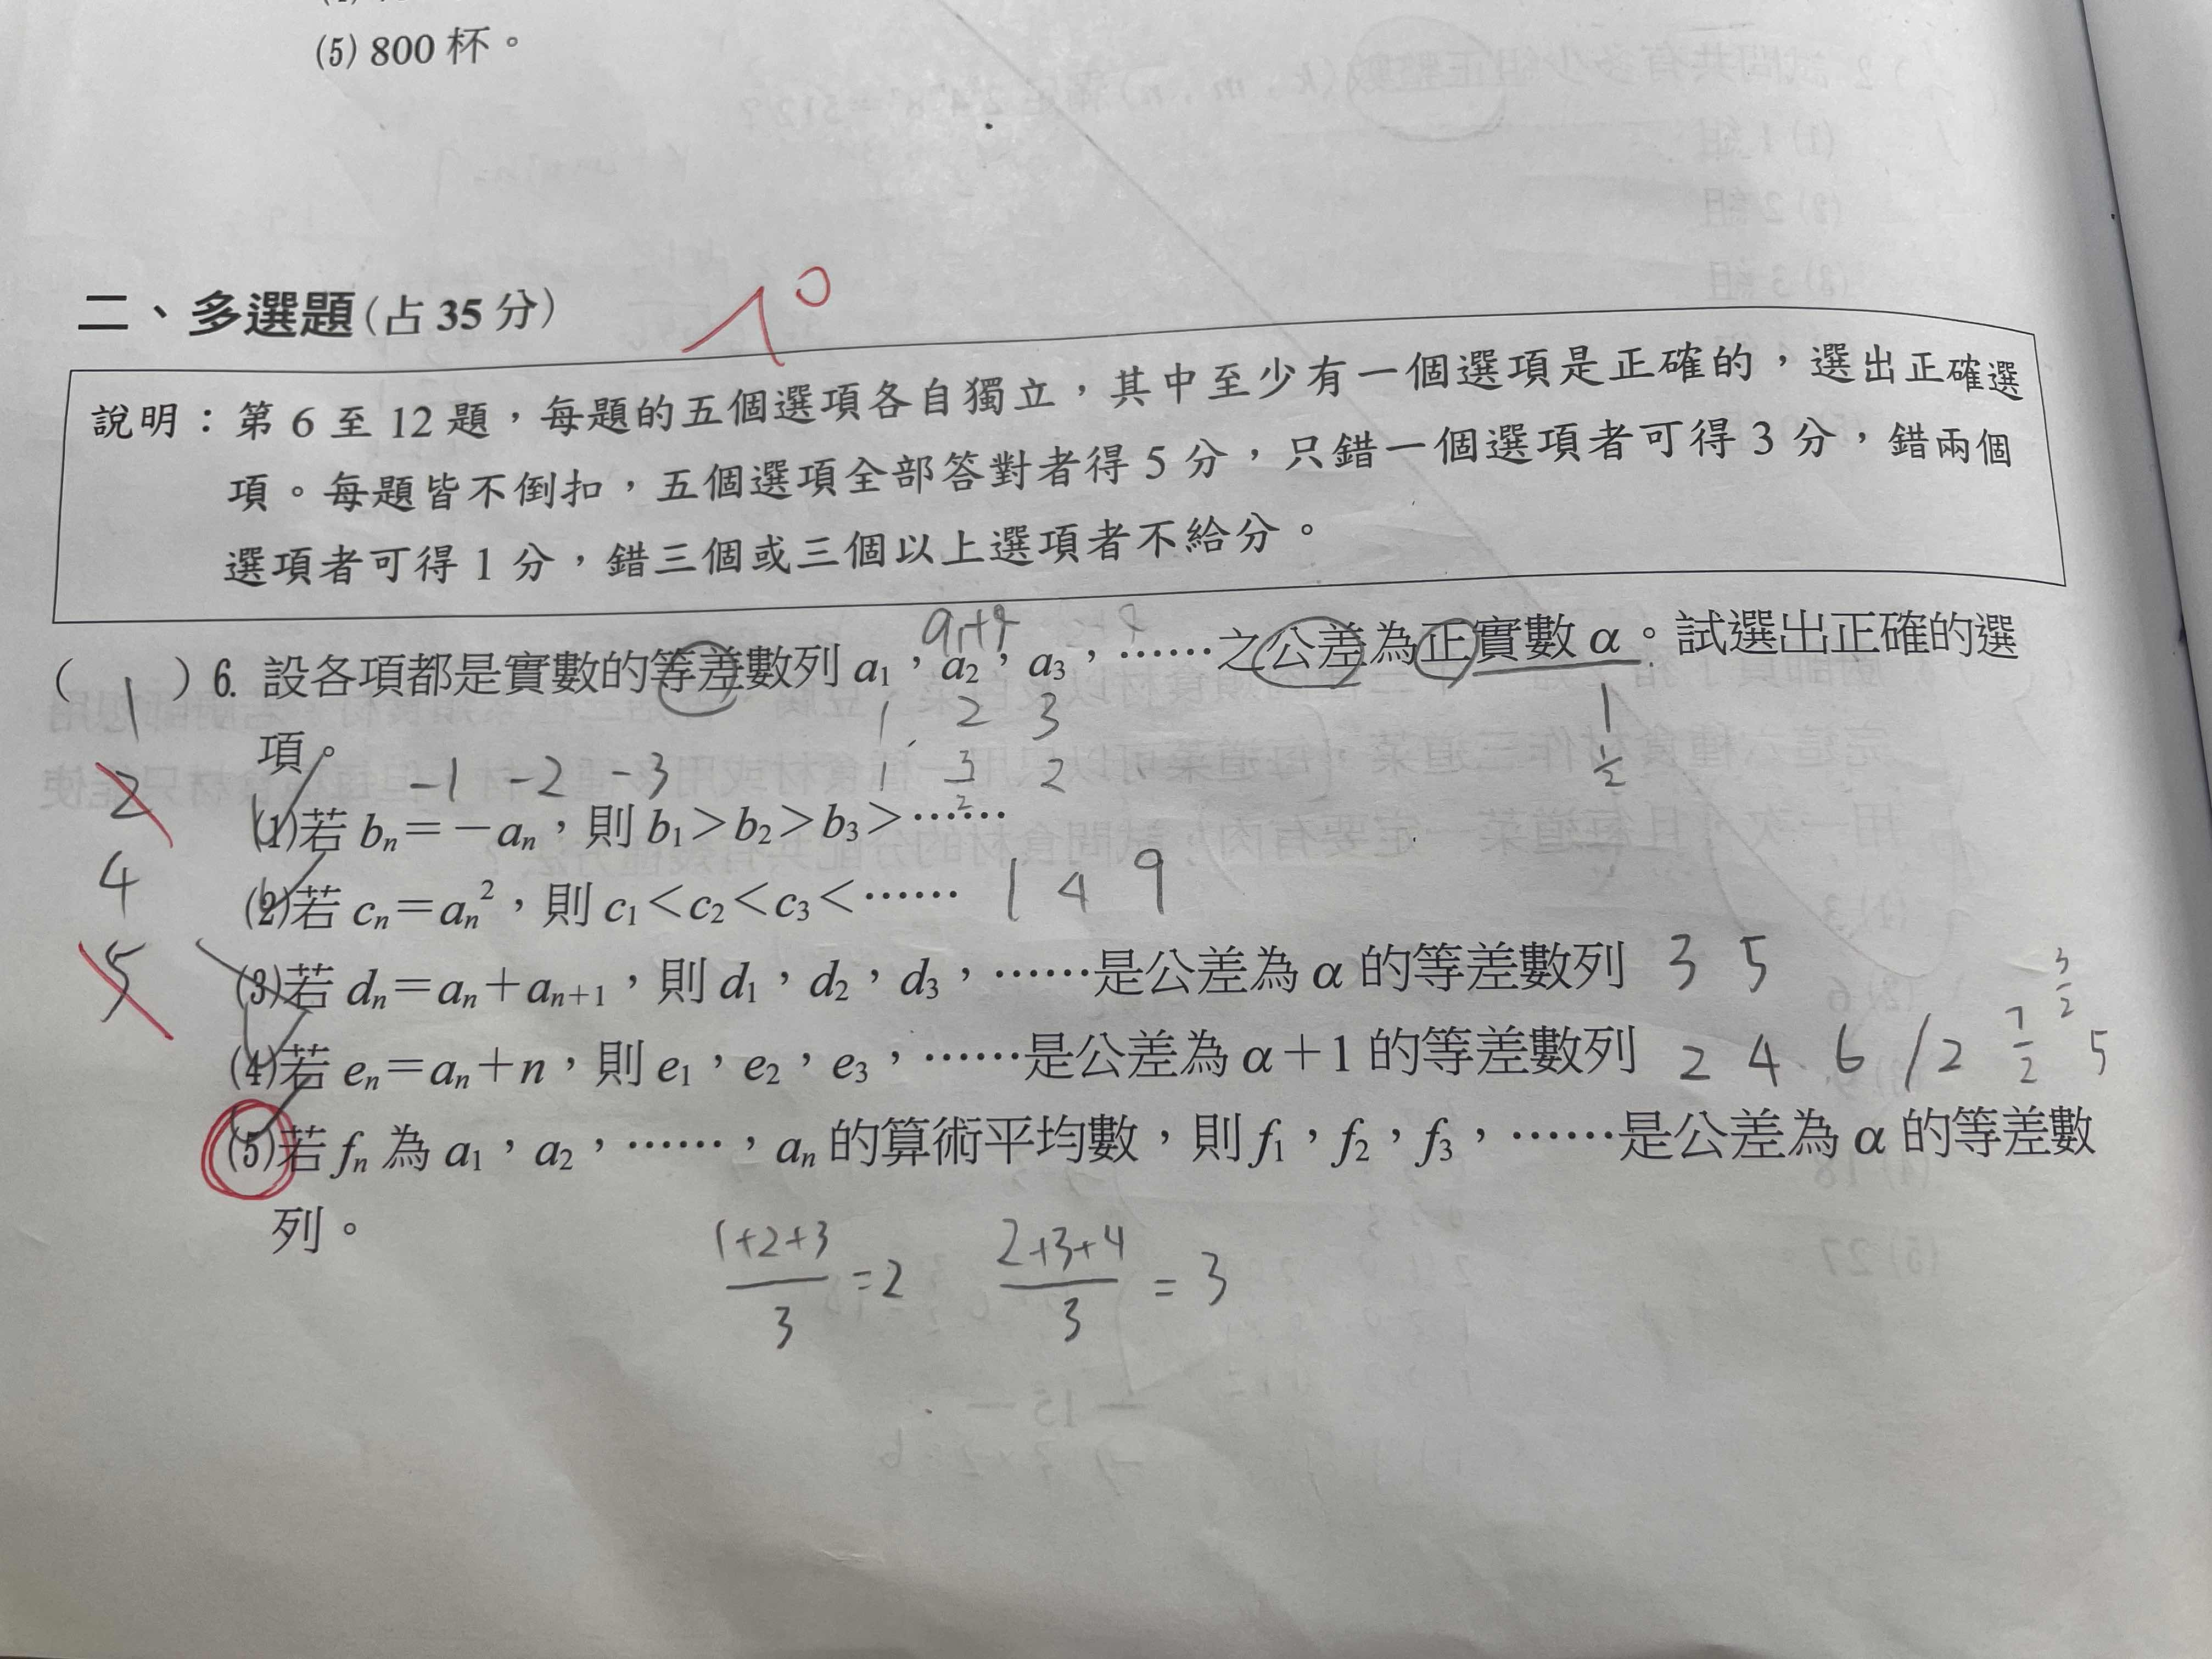 (5) 800 杯。
10
二、多選題(占 35 分)
說明：第 6 至 12 題，每題的五個選項各自獨立，其中至少有一個選項是正確的，選出正確選
項。每題皆不倒扣，五個選項全部答對者得 5 分，只錯一個選項者可得 3 分，錯兩個
選項者可得 1 分，錯三個或三個以上選項者不給分。
( ) 6. 設各項都是實數的等差數列 a₁，a₂，a₃，……之公差為正實數 α。試選出正確的選
1 2 3 1
項。
1 3/2 2 1/2
-1 -2 -3
(1)若 bₙ＝－aₙ，則 b₁＞b₂＞b₃＞……
(2)若 cₙ＝aₙ²，則 c₁＜c₂＜c₃＜…… 1 4 9
(3)若 dₙ＝aₙ＋aₙ₊₁，則 d₁，d₂，d₃，……是公差為 α 的等差數列 3 5
3/2
(4)若 eₙ＝aₙ＋n，則 e₁，e₂，e₃，……是公差為 α＋1 的等差數列 2 4 6 / 2 7/2 5
(5)若 fₙ 為 a₁，a₂，……，aₙ 的算術平均數，則 f₁，f₂，f₃，……是公差為 α 的等差數
列。
1
2
4
5
(1+2+3)/3 = 2 (2+3+4)/3 = 3